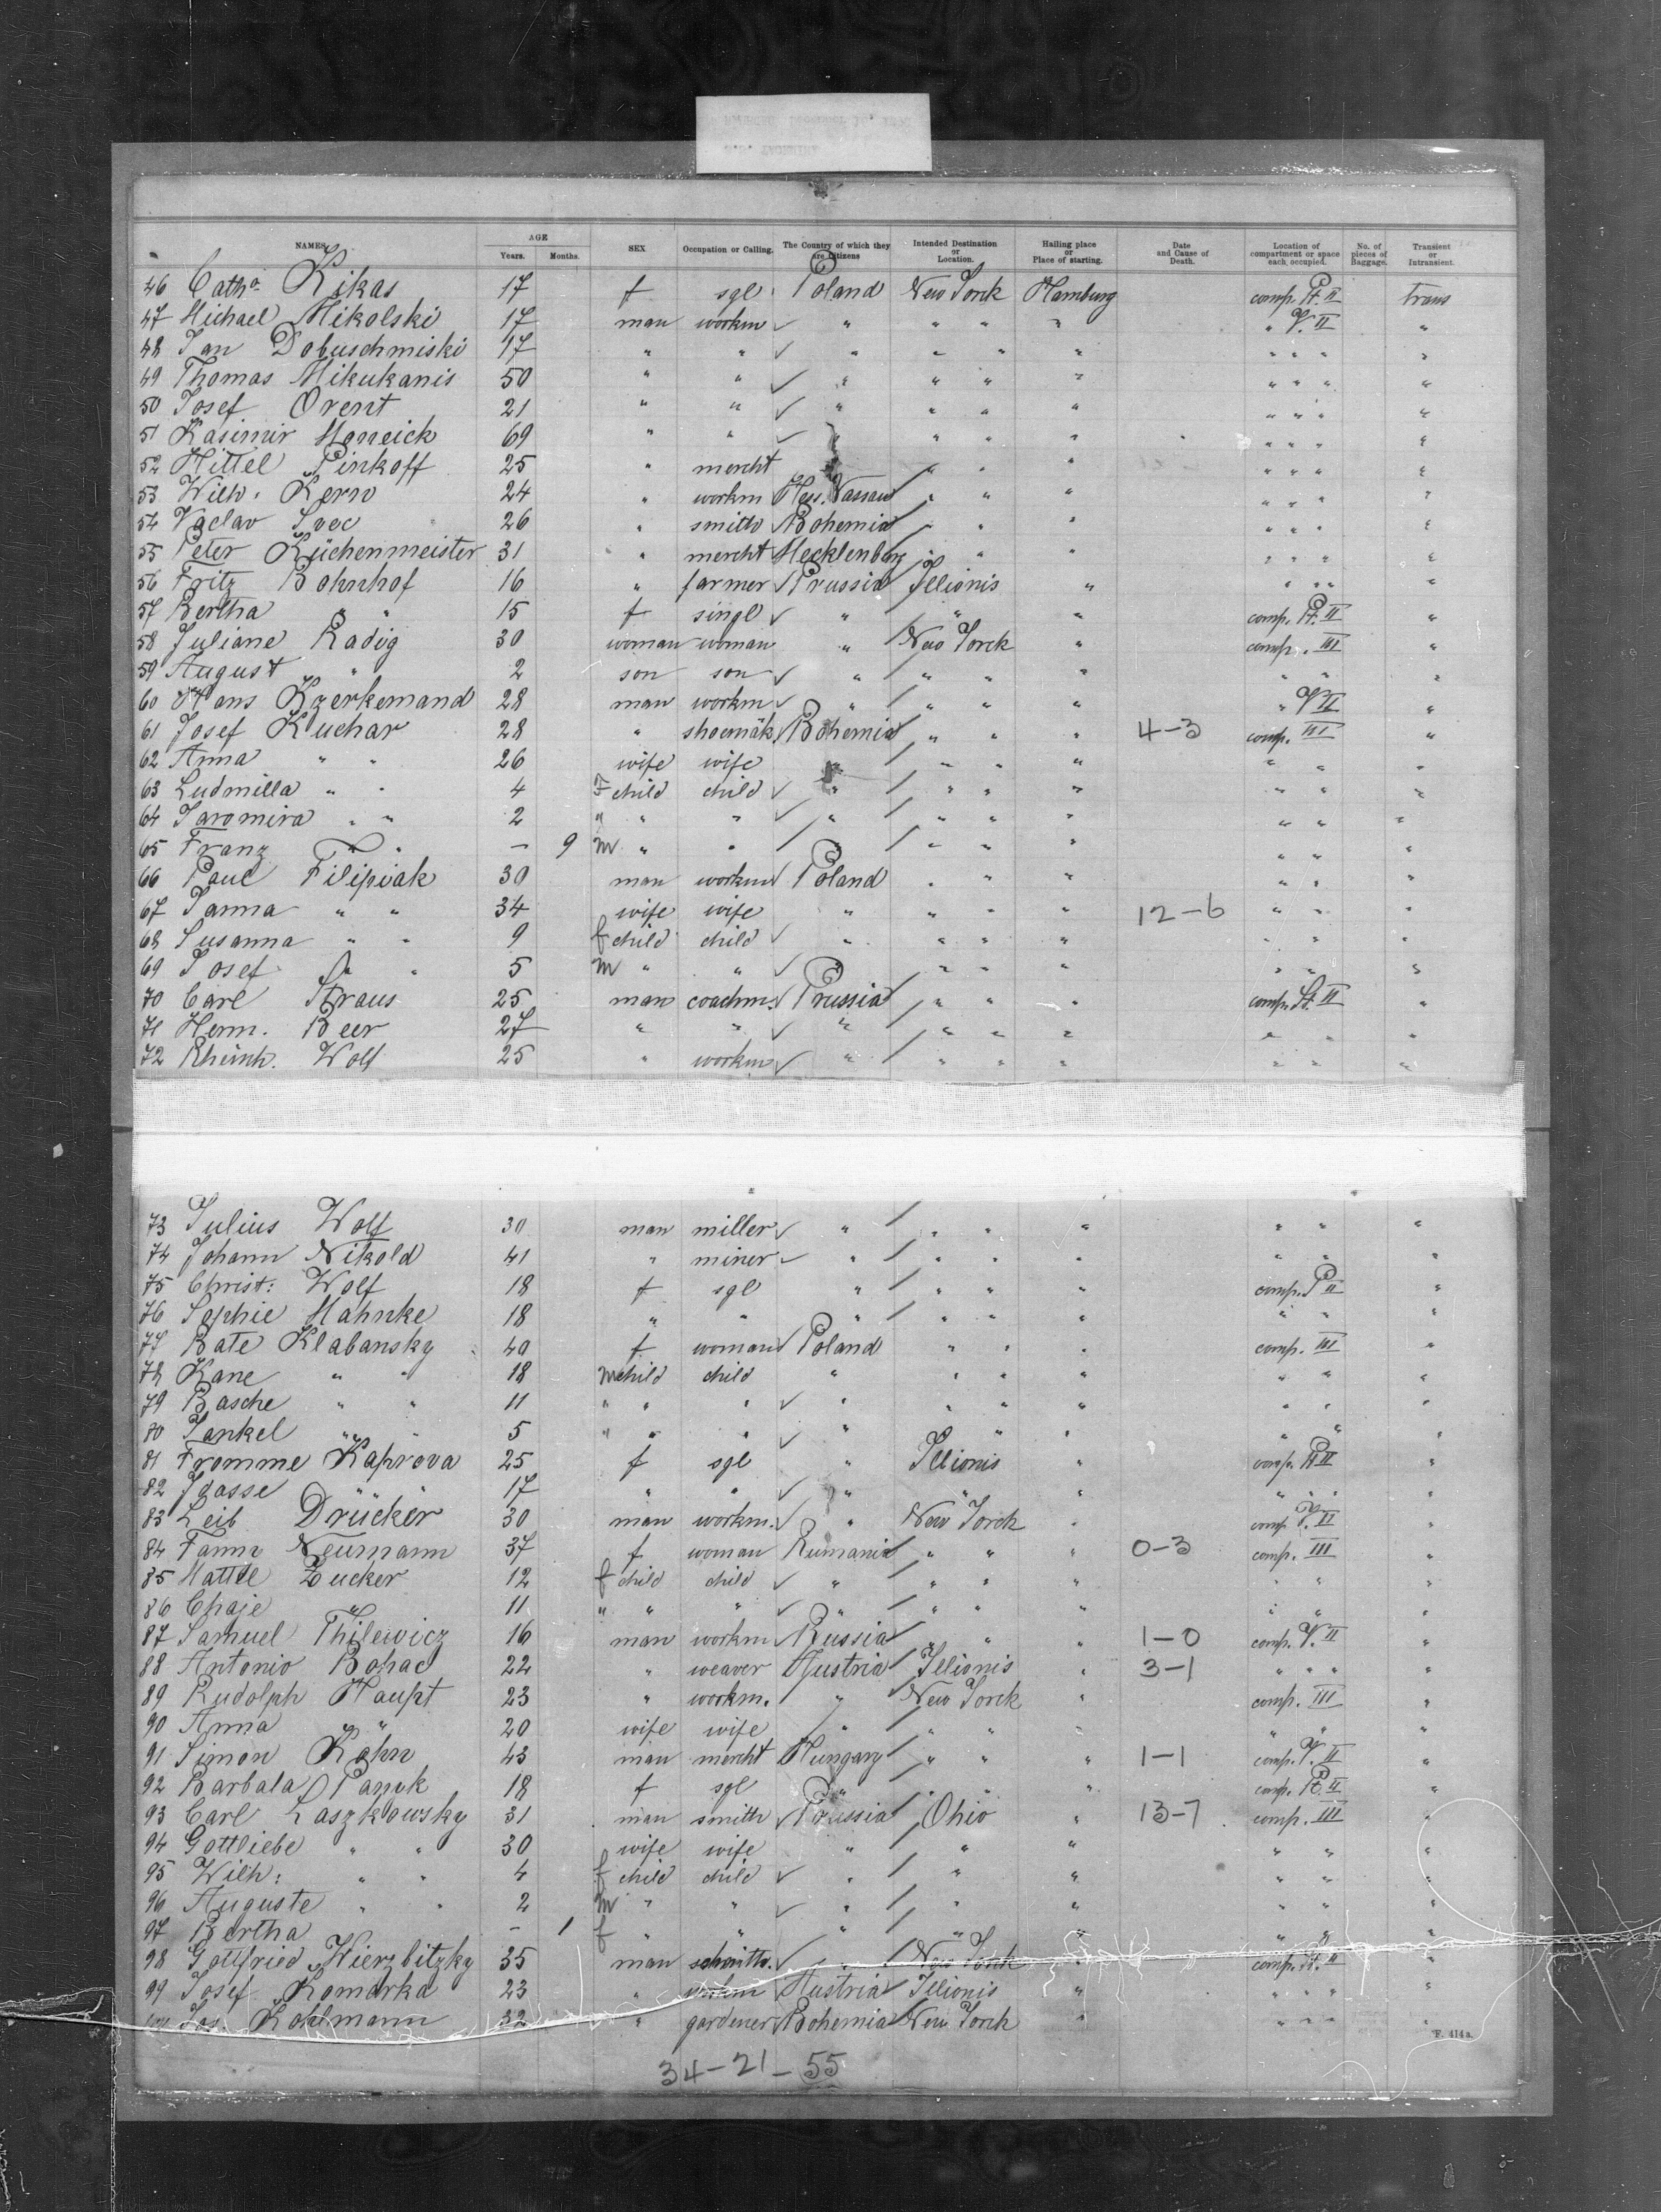 NAMES. AGE Years. Months. SEX Occupation or Calling. The Country of which they are Citizens Intended Destination or Location. Hailing place or Place of starting. Date and Cause of Death. Location of compartment or space each occupied. No. of pieces of Baggage. Transient or Intransient.
46 Catha Kikas 17 f sgl. Poland New Yorck Hamburg comp. Pt. II trans
47 Michael Mikolski 17 man workm " " " " " V. II "
48 Jan Dobuschmiski 17 " " " " " " " " " "
49 Thomas Mikukanis 50 " " " " " " " " " "
50 Josef Orent 21 " " " " " " " " " "
51 Kasimir Moneick 69 " " " " " " " " " "
52 Hittel Pinkoff 25 " mercht " " " " " " "
53 Wilh. Kern 24 " workm Hess. Nassau " " " " " " "
54 Vaclav Svec 26 " smith Bohemia " " " " " "
55 Peter Küchenmeister 31 " mercht Mecklenburg " " " " " " "
56 Fritz Bohnhof 16 " farmer Prussia Illionis " " " " "
57 Bertha " " 15 f singl " " " comp. Pt. II "
58 Juliane Radig 30 woman woman " New Yorck " comp. III "
59 August " 2 son son " " " " " " "
60 Hans Kzerkemand 28 man workm " " " " " V II "
61 Josef Kuchar 28 " shoemak. Bohemia " " " 4-3 comp. III "
62 Anna " " 26 wife wife " " " " " " "
63 Ludmilla " " 4 F child child " " " " " " "
64 Jaromira " " 2 " " " " " " " " " "
65 Franz " " - 9 M " " " " " " " " "
66 Paul Filipiak 30 man workm Poland " " " " " "
67 Janna " " 34 wife wife " " " " 12-6 " " "
68 Susanna " " 9 f child child " " " " " " "
69 Josef " " 5 M " " " " " " " " "
70 Carl Straus 25 man coachm. Prussia " " " comp. St. II "
71 Herm. Beer 27 " " " " " " " " "
72 Rheinh. Wolf 25 " workm " " " " " " "
73 Julius Wolf 30 man miller " " " " " " "
74 Johann Nikold 41 " miner " " " " " " "
75 Christ: Wolf 18 f sgl " " " " comp. P II "
76 Sophie Mahnke 18 " " " " " " " " "
77 Bate Klabansky 40 f woman Poland " " " comp. III "
78 Kane " " 18 M child child " " " " " " "
79 Basche " " 11 " " " " " " " " " "
80 Jankel " " 5 " " " " " " " " "
81 Fromme Kaprova 25 f sgl " Illionis " comp. Pt II "
82 Jdasse " " 17 " " " " " " " " "
83 Leib Drücker 30 man workm. " New Yorck " comp V. II "
84 Fanny Neumann 37 f woman Rumania " " " 0-3 comp. III "
85 Mattle Zucker 12 f child child " " " " " " "
86 Chaje " 11 " " " " " " " " " "
87 Samuel Thilewicz 16 man workm Russia " " " 1-0 comp. V. II "
88 Antonio Bohac 22 " weaver Austria Illionis " 3-1 " " " "
89 Rudolph Haupt 23 " workm. " New Yorck " comp. III "
90 Anna " 20 wife wife " " " " " " "
91 Simon Kohn 43 man mercht Hungary " " " 1-1 comp. V. II "
92 Barbala 18 f sgl " " " " comp. Pt. II "
93 Carl Laszkowsky 31 man smith Prussia Ohio " 13-7 comp. III "
94 Gottliebe " " 30 wife wife " " " " " "
95 Wilh: " " 4 f child child " " " " " "
96 Auguste " " 2 M " " " " " " " "
97 Bertha - 1 f " " " " " " " "
98 Gottfried Wierzbitzky 35 man " New Yorck " comp. St. II "
99 Josef Komarka 23 " workm Austria Illionis " " " " "
100 Jos. Kohlmann 32 " gardener Bohemia New Yorck " " " " "
F. 414a.
34-21-55